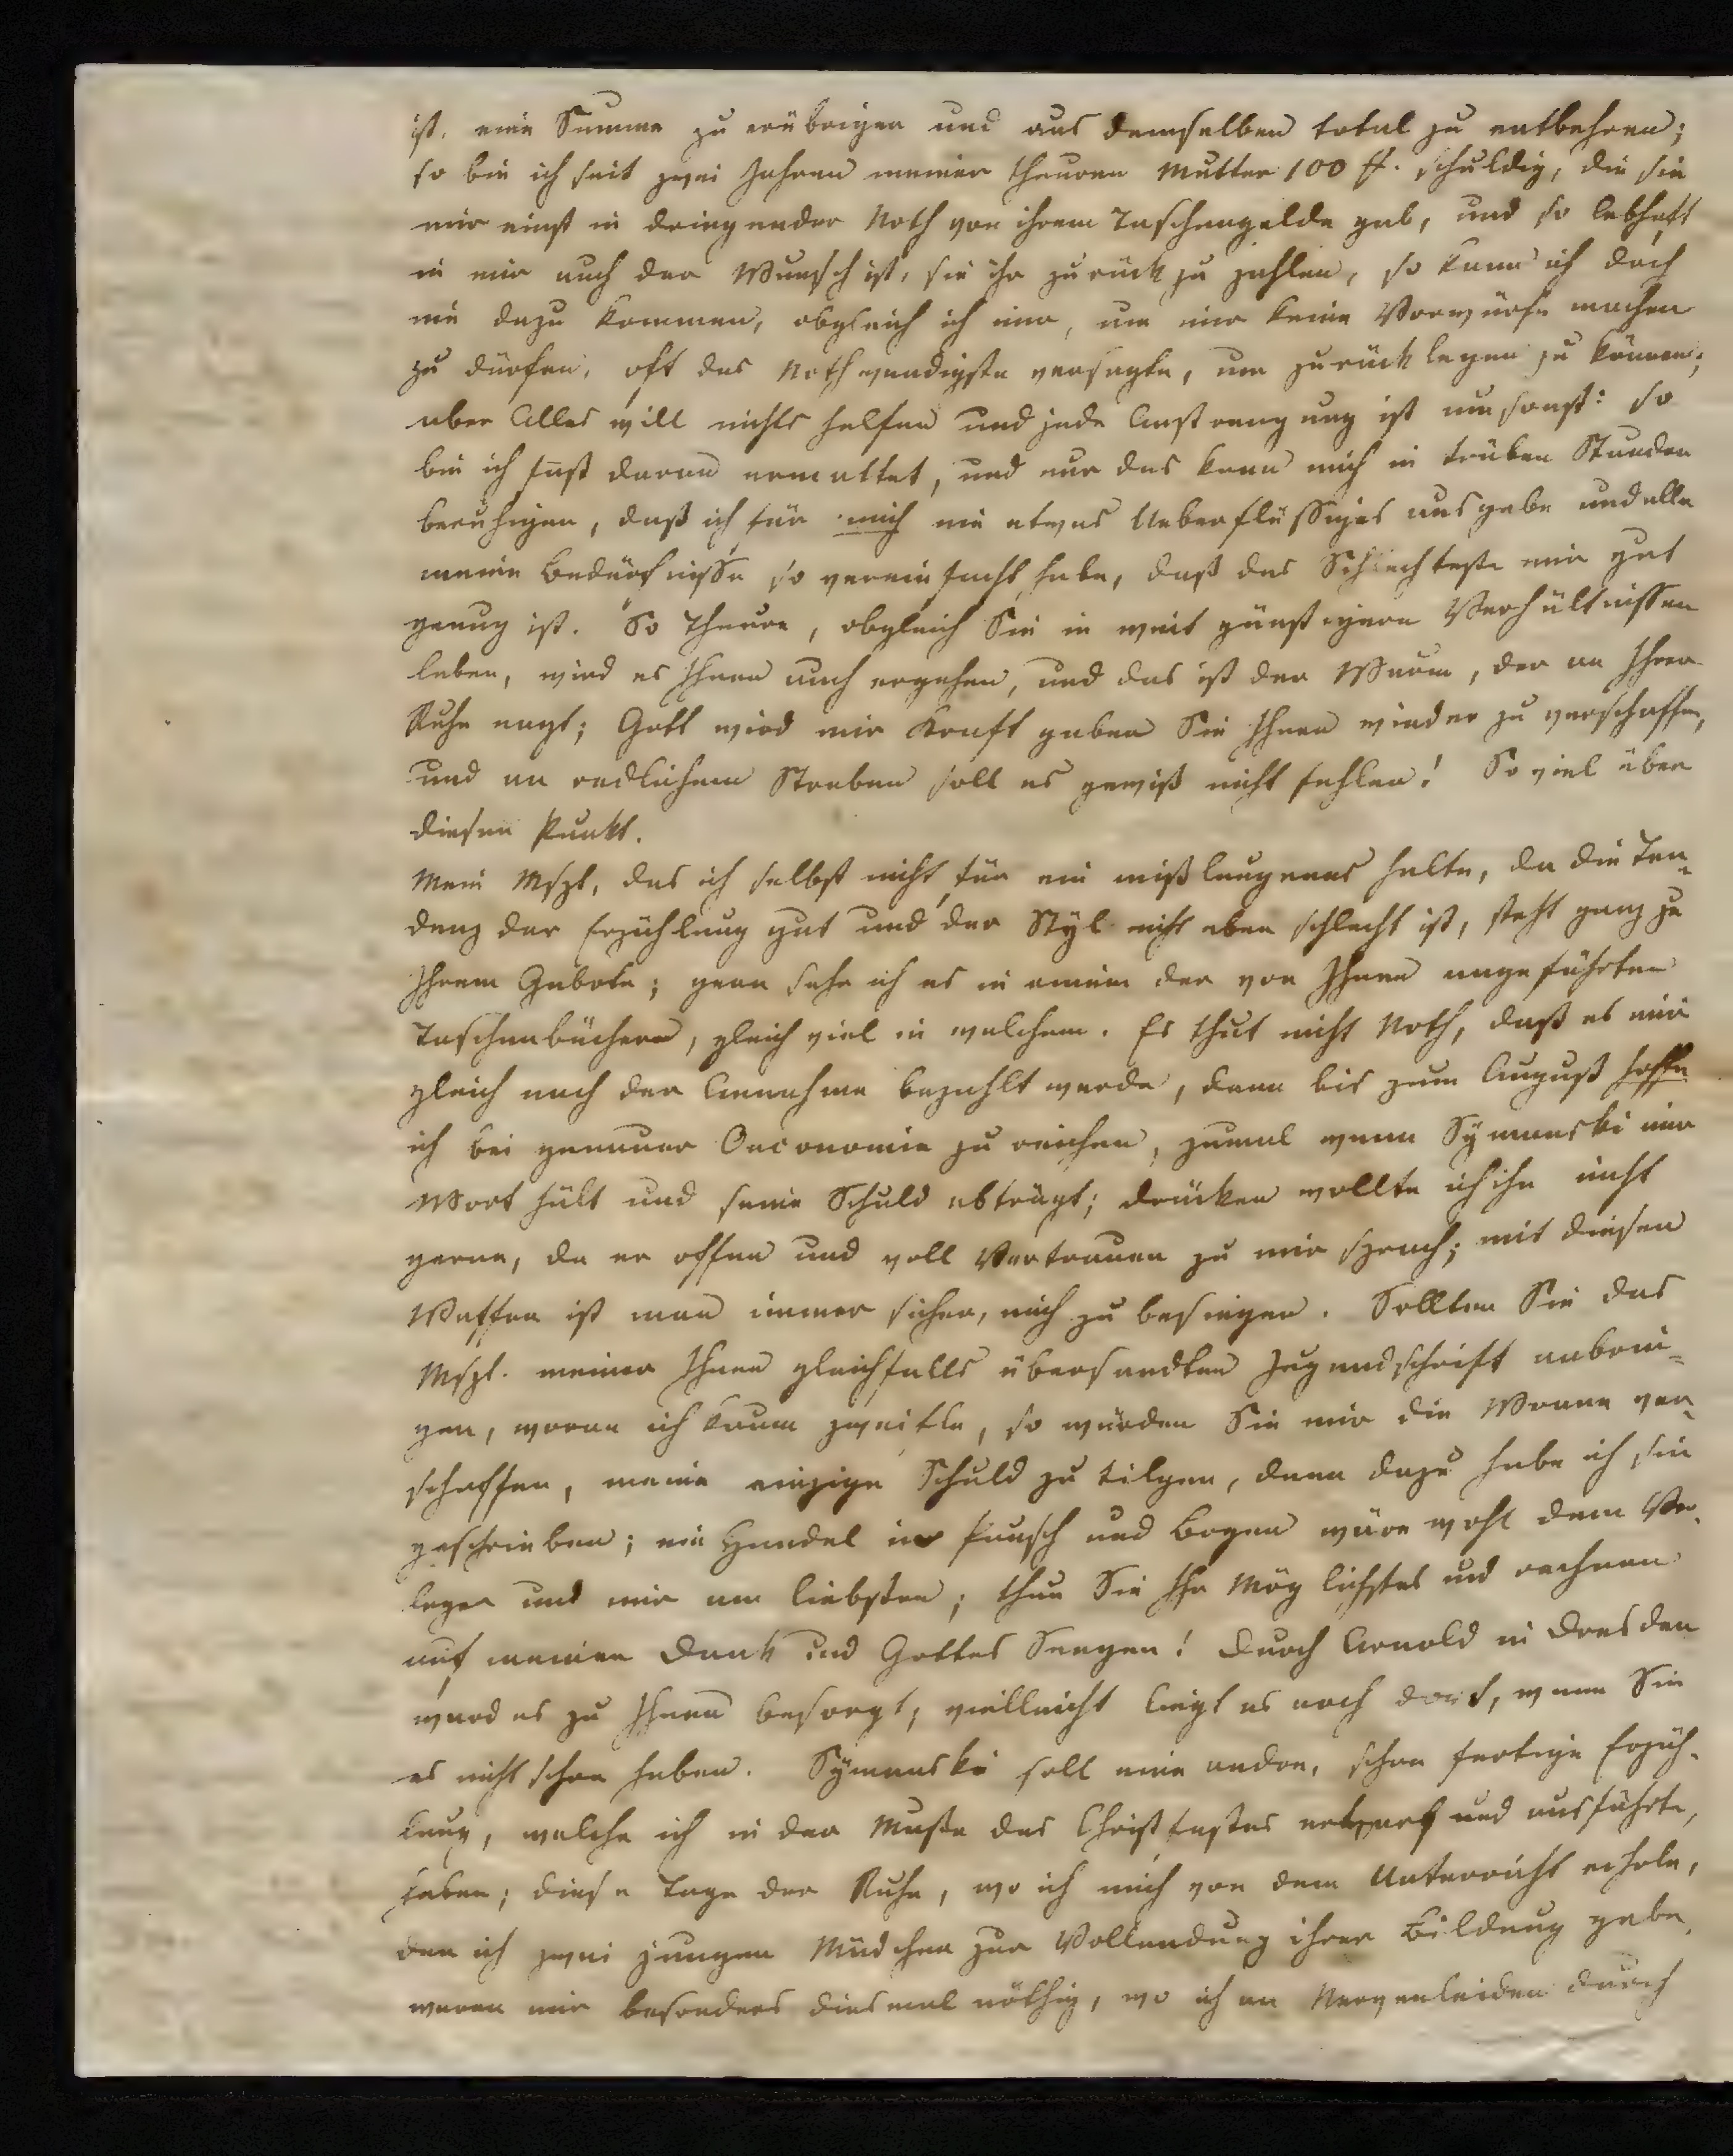 ist, eine Summe zu erübrigen und aus demselben total zu entbehren;
so bin ich seit zwei Jahren meiner theuren Mutter 100 ff. schuldig, die sie
mir einst in dringender Noth von ihrem Taschengelde gab, und so lebhaft
in mir auch der Wunsch ist, sie ihr zurück zu zahlen, so kann ich doch
nie dazu kommen, obgleich ich mir, um mir keine Vorwürfe machen
zu dürfen, oft das Nothwendigste versagte, um zurücklegen zu können;
aber Alles will nichts helfen und jede Anstrengung ist umsonst: so
bin ich fast daran ermattet, und nur das kann mich in trüben Stunden
beruhigen, daß ich für mich nie etwas Ueberflüssiges ausgebe und alle
meine Bedürfnisse so vereinfacht habe, daß das Schlechteste mir gut
genug ist. So Theure, obgleich Sie in weit günstigern Verhältnissen
leben, wird es Ihnen auch ergehen, und das ist der Wurm, der an Ihrer
Ruhe nagt; Gott wird mir Kraft geben Sie Ihnen wieder zu verschaffen,
und an redlichem Streben soll es gewiß nicht fehlen! So viel über
diesen Punkt.
Mein Mspt, das ich selbst nicht für ein mißlungenes halte, da die Ten-
denz der Erzählung gut und der Styl nicht eben schlecht ist, steht ganz zu
Ihrem Gebote; gern sehe ich es in einem der von Ihnen angeführten
Taschenbüchern, gleich viel in welchem. Es thut nicht Noth, daß es mir
gleich nach der Annahme bezahlt werde, denn bis zum August hoffe
ich bei genauer Oeconomie zu reichen, zumal wenn Symanski mir
Wort hält und seine Schuld abträgt; drücken wollte ich ihn nicht
gerne, da er offen und voll Vertrauen zu mir sprach; mit diesen
Waffen ist man immer sicher, mich zu besiegen. Sollten Sie das
Mspt. meiner Ihnen gleichfalls übersandten Jugendschrift anbrin-
gen, woran ich kaum zweifle, so würden Sie mir die Wonne ver-
schaffen, meine einzige Schuld zu tilgen, denn dazu habe ich sie
geschrieben; ein Handel in Pausch und Bogen wäre wohl dem Ver-
leger und mir am liebsten; thun Sie Ihr Möglichstes und rechnen
auf meinen Dank und Gottes Seegen! Durch Arnold in Dresden
ward es zu Ihnen besorgt, vielleicht liegt es noch dort, wenn Sie
es nicht schon haben. Symanski soll eine andre, schon fertige Erzäh-
lung, welche ich in der Muße des Christfestes entwarf und ausführte,
haben; diese Tage der Ruhe, wo ich mich von dem Unterricht erhole,
den ich zwei jungen Mädchen zur Vollendung ihrer Bildung gebe,
waren mir besonders diesmal nöthig, wo ich an Nervenleiden durch